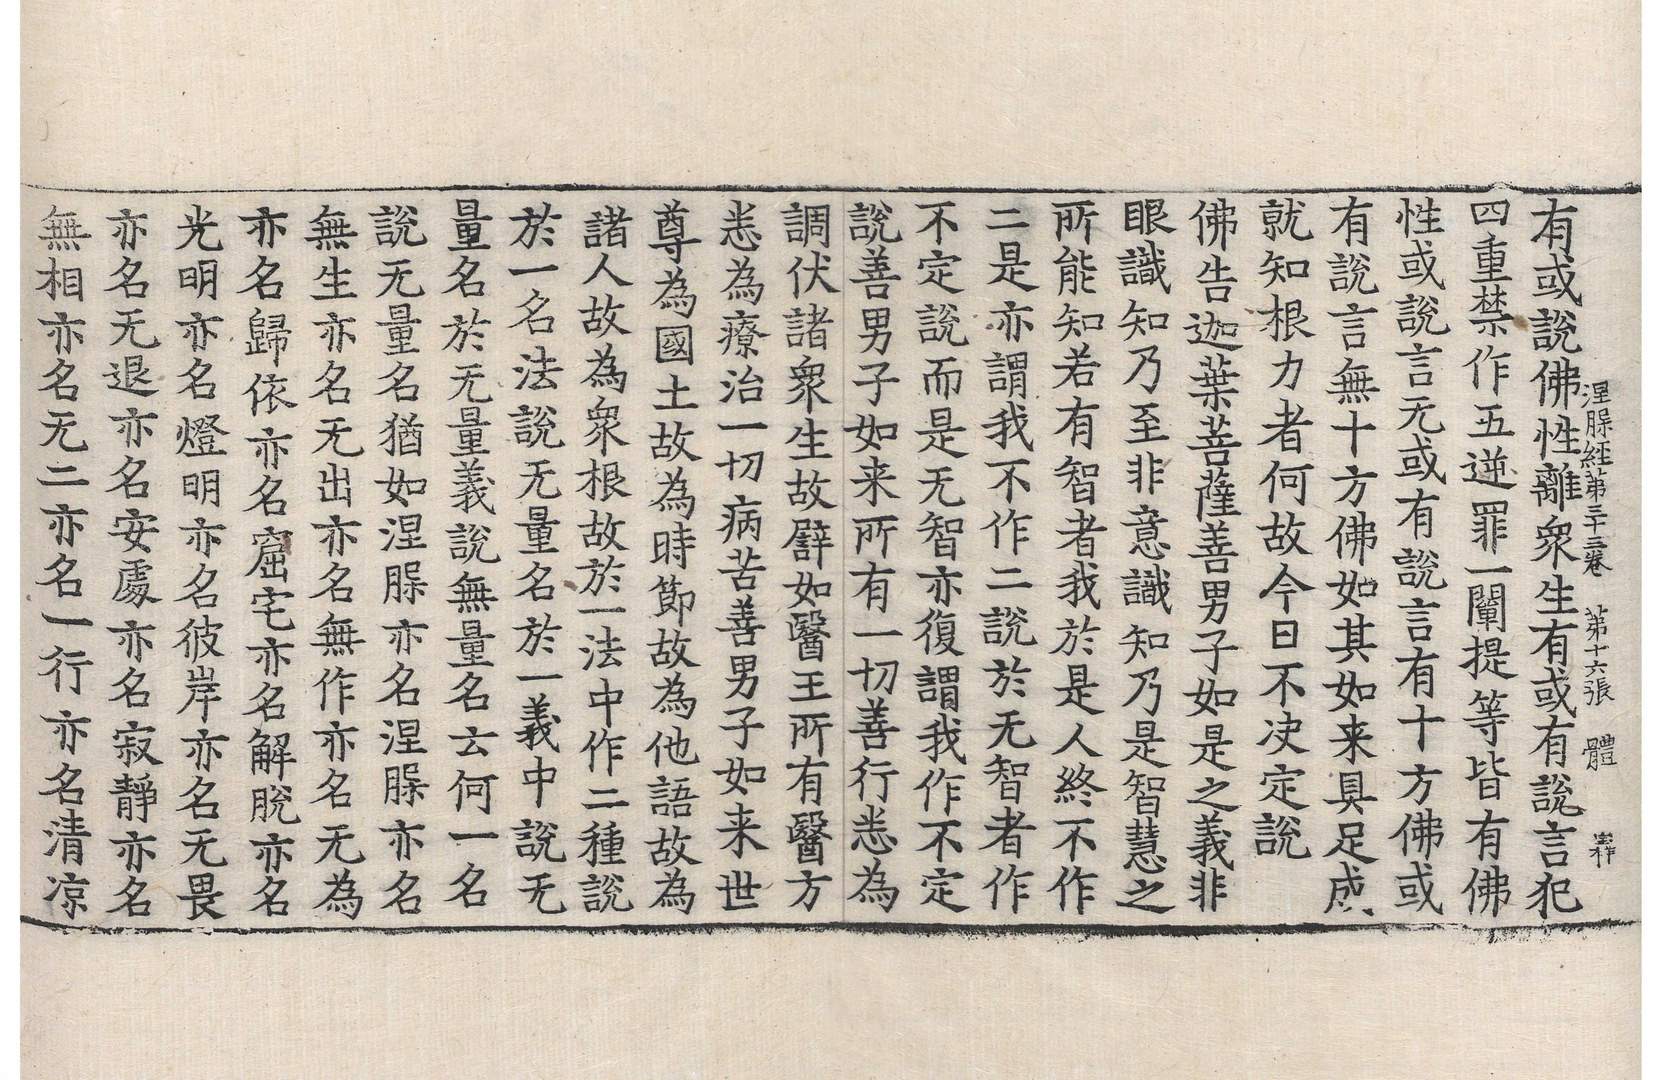 涅槃經第三十三卷　第十六張　體
有或說佛性離衆生有或有說言犯
四重禁作五逆罪一闡提等皆有佛
性或說言无或有說言有十方佛或
有說言無十方佛如其如来具足成
就知根力者何故今日不决定說
佛告迦葉菩薩善男子如是之義非
眼識知乃至非意識知乃是智慧之
所能知若有智者我於是人終不作
二是亦謂我不作二說於无智者作
不定說而是无智亦復謂我作不定
說善男子如来所有一切善行悉為
調伏諸衆生故譬如醫王所有醫方
悉為療治一切病苦善男子如来世
尊為國土故為時節故為他語故為
諸人故為衆根故於一法中作二種說
於一名法說无量名於一義中說无
量名於无量義說無量名云何一名
說无量名猶如涅槃亦名涅槃亦名
無生亦名无出亦名無作亦名无為
亦名歸依亦名窟宅亦名解脫亦名
光明亦名燈明亦名彼岸亦名无畏
亦名无退亦名安處亦名寂靜亦名
無相亦名无二亦名一行亦名清凉